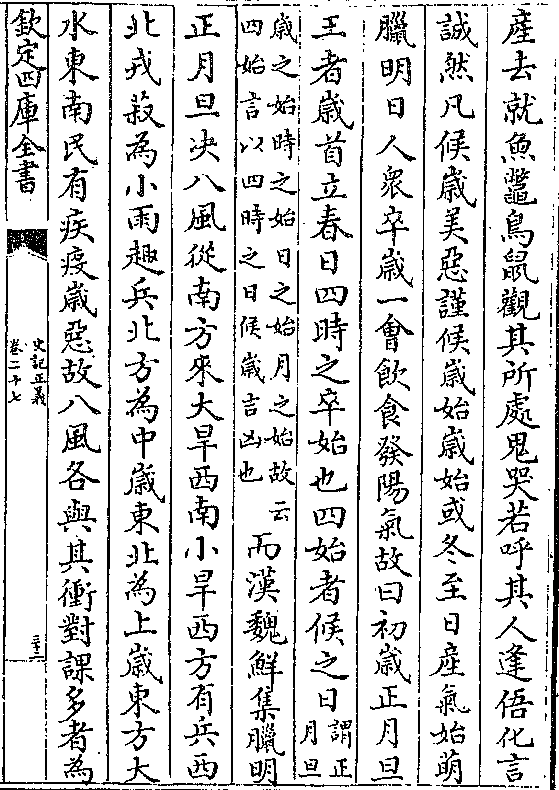 産去就魚鼈鳥鼠觀其所處鬼哭若呼其人逢俉化言
誠然凡候歲美惡謹候歲始歲始或冬至日産氣始萌
臘明日人衆卒歲一會飲食發陽氣故曰初歲正月旦
王者歲首立春日四時之卒始也四始者候之日謂正月旦
歲之始時之始日之始月之始故云
四始言以四時之日候歲吉凶也
而漢魏鮮集臘明
正月旦决八風從南方來大旱西南小旱西方有兵西
北戎菽為小雨趣兵北方為中歲東北為上歲東方大
水東南民有疾疫歲惡故八風各與其衝對課多者為
欽定四庫全書
史記正義
卷二十七
三十三